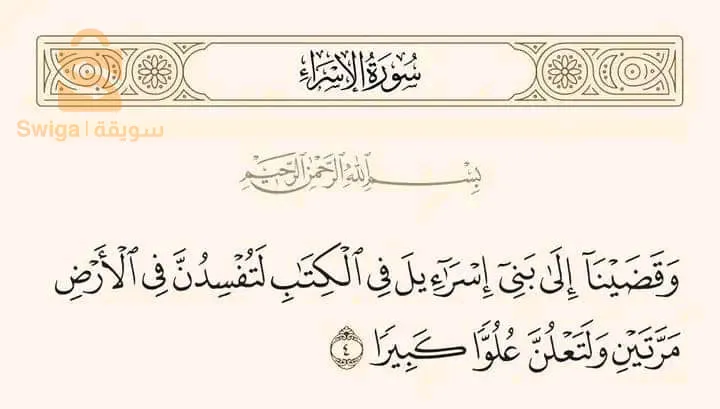 سُورَةُ الإِسْرَاءِ
Swiga | سويقة
بِسْمِ ٱللَّهِ ٱلرَّحْمَٰنِ ٱلرَّحِيمِ
وَقَضَيْنَآ إِلَىٰ بَنِىٓ إِسْرَٰٓءِيلَ فِى ٱلْكِتَٰبِ لَتُفْسِدُنَّ فِى ٱلْأَرْضِ
مَرَّتَيْنِ وَلَتَعْلُنَّ عُلُوًّا كَبِيرًا ٤